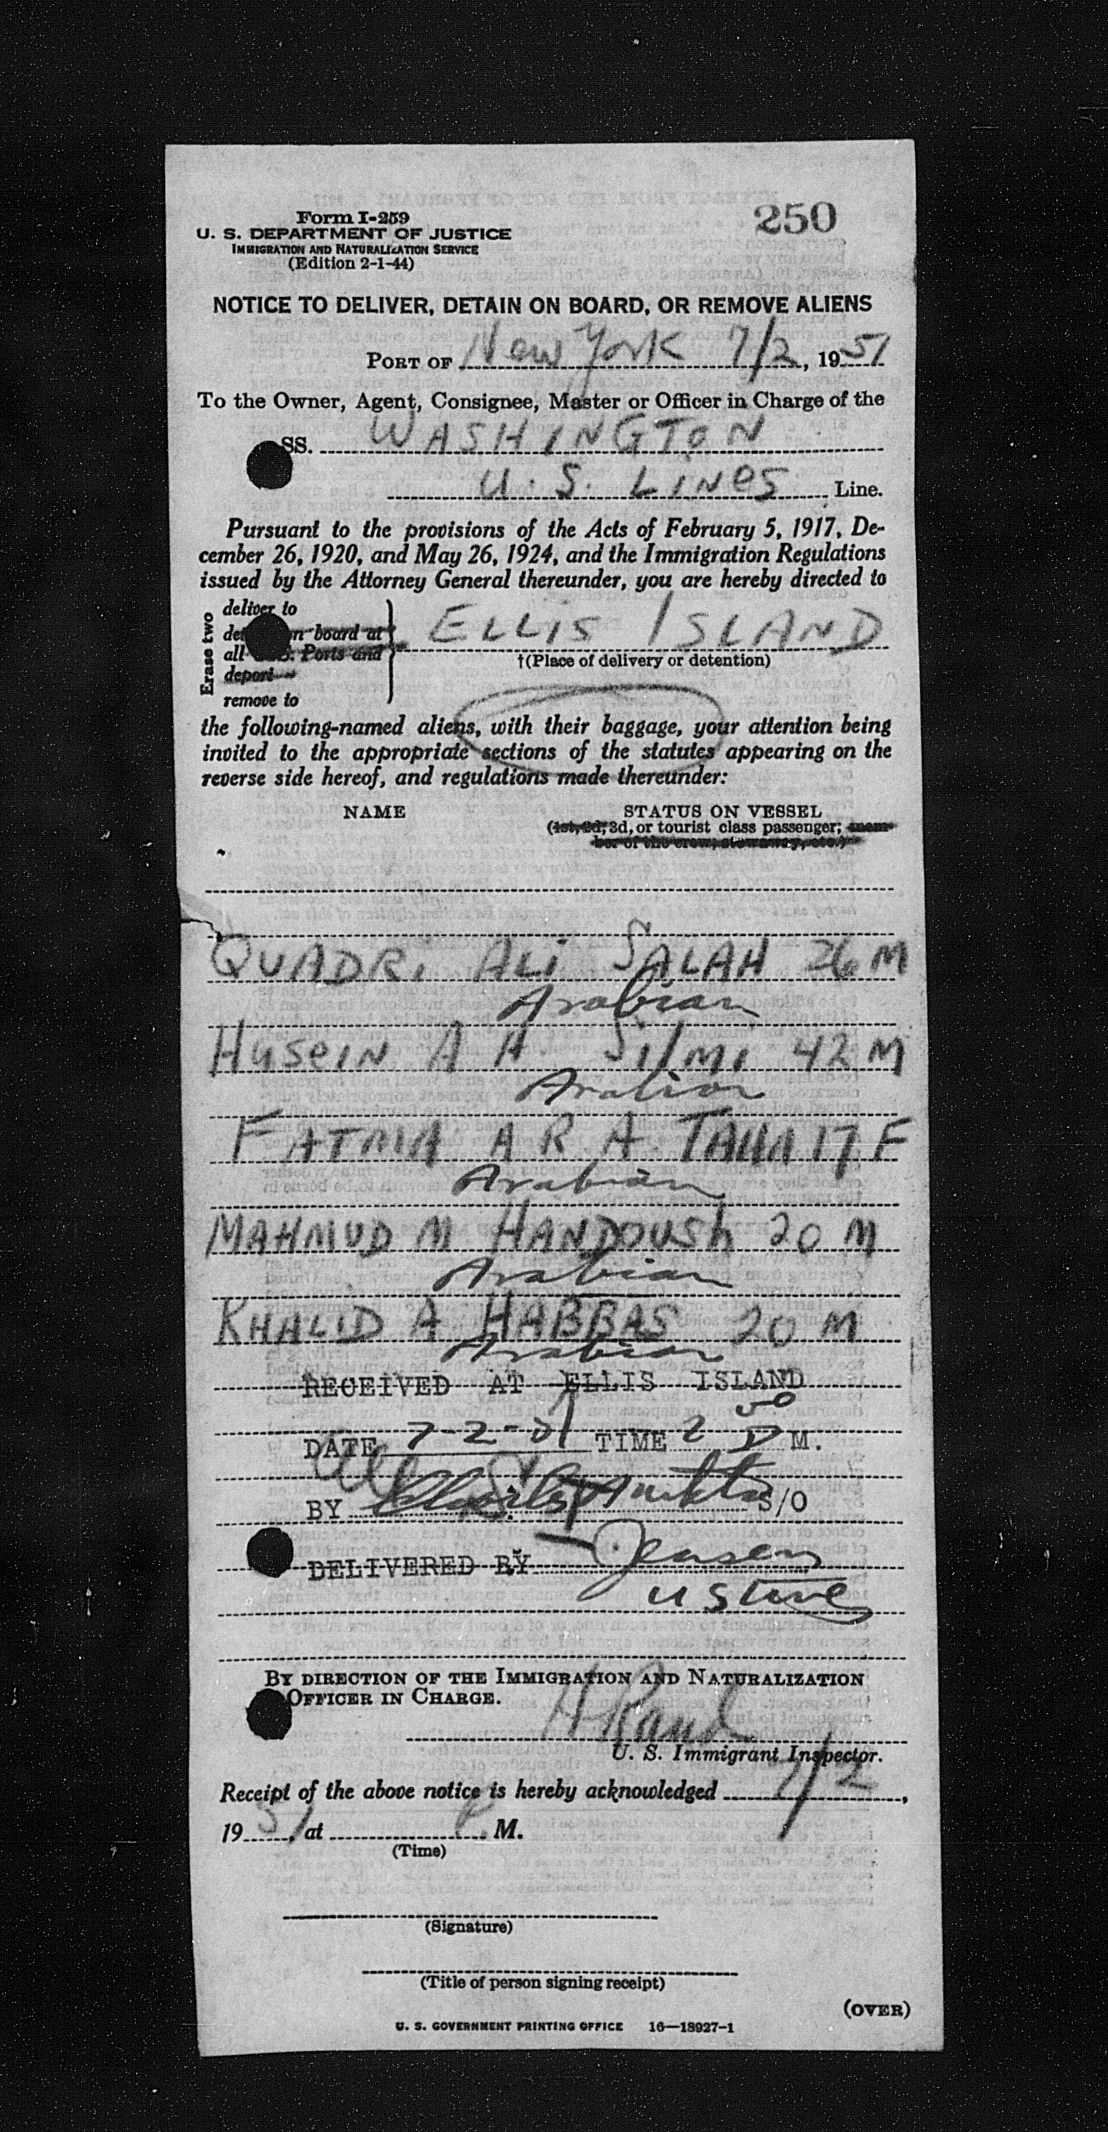 250
Form I-259
U. S. DEPARTMENT OF JUSTICE
IMMIGRATION AND NATURALIZATION SERVICE
(Edition 2-1-44)
NOTICE TO DELIVER, DETAIN ON BOARD, OR REMOVE ALIENS
PORT OF New York 7/2, 1951
To the Owner, Agent, Consignee, Master or Officer in Charge of the
SS. WASHINGTON
U.S. LINES Line.
Pursuant to the provisions of the Acts of February 5, 1917, De-
cember 26, 1920, and May 26, 1924, and the Immigration Regulations
issued by the Attorney General thereunder, you are hereby directed to
Erase two
deliver to
on board at
all Ports and
deport
remove to
ELLIS ISLAND
†(Place of delivery or detention)
the following-named aliens, with their baggage, your attention being
invited to the appropriate sections of the statutes appearing on the
reverse side hereof, and regulations made thereunder:
NAME STATUS ON VESSEL
(1st, 2d, 3d, or tourist class passenger; mem-
ber of the crew, stowaway, etc.)
QUADRi ALi SALAH 26 M
Arabian
HuseiN A H Silmi 42 M
Arabian
FATMA A R A. TAHA 17 F
Arabian
MAHMUD M HANDOUSh 20 M
Arabian
KHALID A HABBAS 20 M
Arabian
RECEIVED AT ELLIS ISLAND
DATE 7-2-51 TIME 2 50 P M.
BY S/O
DELIVERED BY Jensen
US Lines
BY DIRECTION OF THE IMMIGRATION AND NATURALIZATION
OFFICER IN CHARGE.
H Rand
U. S. Immigrant Inspector.
Receipt of the above notice is hereby acknowledged 7/2,
1951, at P. M.
(Time)
(Signature)
(Title of person signing receipt)
(OVER)
U. S. GOVERNMENT PRINTING OFFICE 16—18927-1